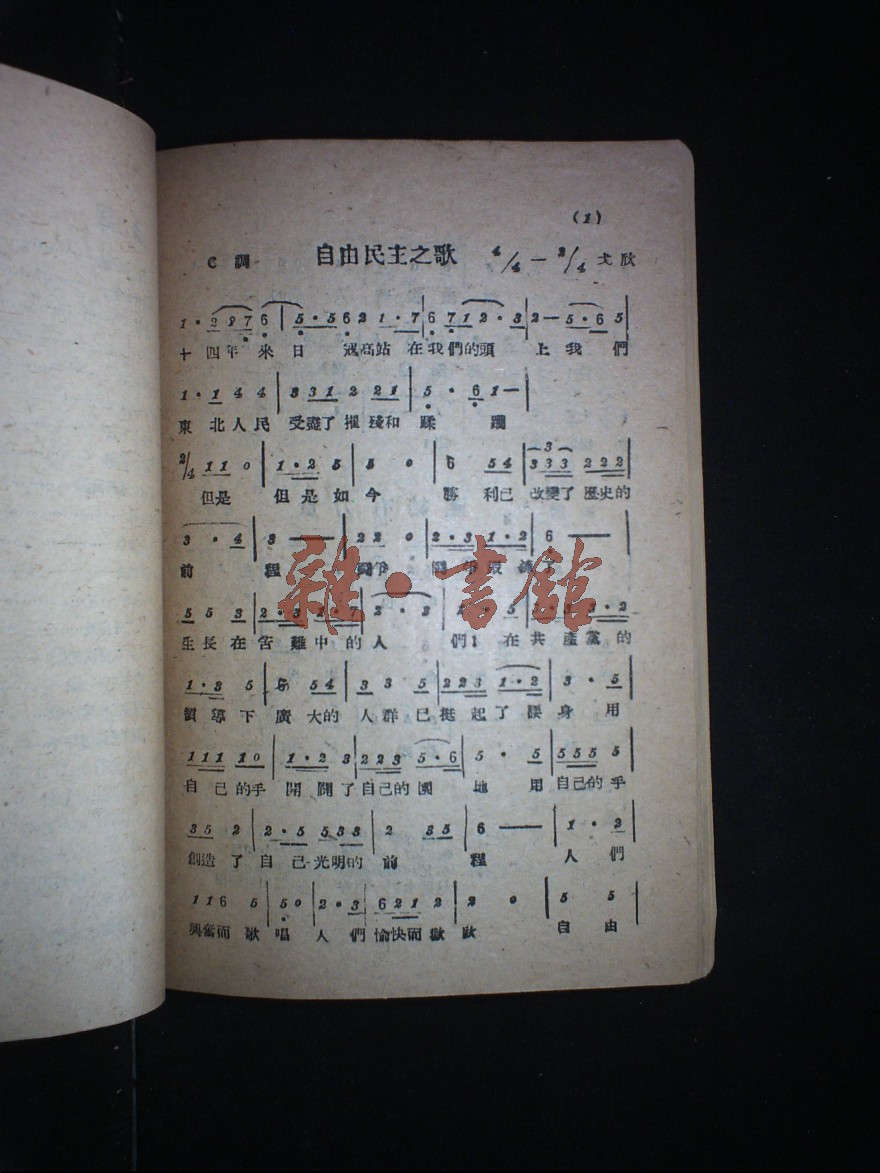 (1)
C 調 自由民主之歌 4/4—2/4 戈欣
1 · 2 2 7 6 | 5 · 5 6 2 1 · 7 | 6 7 1 2 · 3 | 2 — 5 · 6 5
十四年來日 寇高站 在我們的頭 上我們
1 · 1 4 4 | 3 3 1 2 2 1 | 5 · 6 1 —
東北人民 受盡了摧殘和蹂 躪
2/4 1 1 0 | 1 · 2 5 | 5 0 | 6 5 4 | 3 3 3 2 2 2
但是 但是如今 勝利已 改變了歷史的
3 · 4 | 3 — | 2 2 0 | 2 · 3 1 · 2 | 6 —
前 程 了
雜·書館
5 5 3 | 2 · 3 2 · 7 | 2 · 3 | 5 | 3 · 2
生長在苦難中的人 們！在共產黨的
1 · 3 5 | 5 5 4 | 3 3 5 | 2 2 3 1 · 2 | 3 · 5
領導下廣大的人群已挺起了腰身用
1 1 1 1 0 | 1 · 2 3 | 2 2 3 5 · 6 | 5 · 5 | 5 5 5 5
自己的手 開闢了自己的園 地 用自己的手
3 5 2 | 2 · 5 5 3 3 | 2 3 5 | 6 — | 1 · 2
創造了自己光明的前 程 人們
1 1 6 5 | 5 0 | 2 · 3 | 6 2 1 2 | 2 0 | 5 5
興奮而歌唱 人們愉快而歡 自由